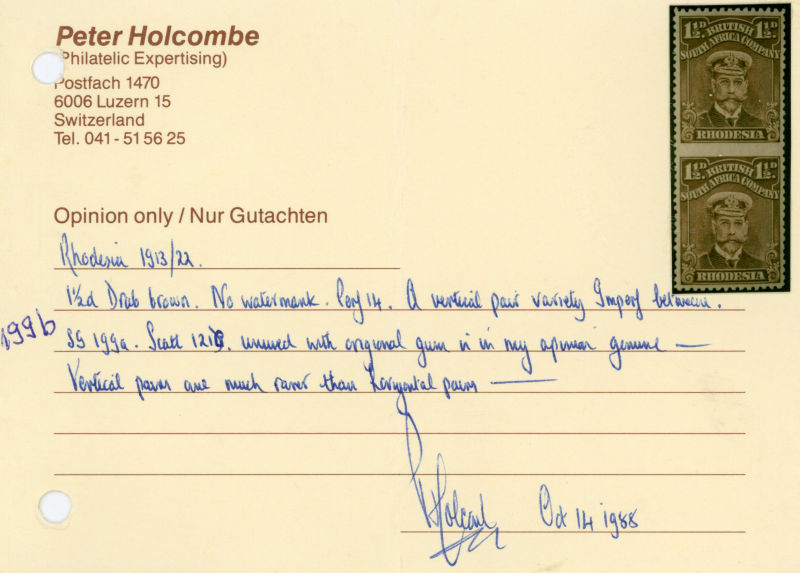 Peter Holcombe
(Philatelic Expertising)
Postfach 1470
6006 Luzern 15
Switzerland
Tel. 041 - 51 56 25
1½D. BRITISH 1½D.
SOUTH AFRICA COMPANY
RHODESIA
1½D. BRITISH 1½D.
SOUTH AFRICA COMPANY
RHODESIA
Opinion only / Nur Gutachten
Rhodesia 1913/22.
1½d Drab brown. No watermark. Perf 14. A vertical pair variety Imperf between.
199b
SG 199a. Scott 121 unused with original gum is in my opinion genuine —
Vertical pairs are much rarer than horizontal pairs —
Holcombe Oct 14 1988